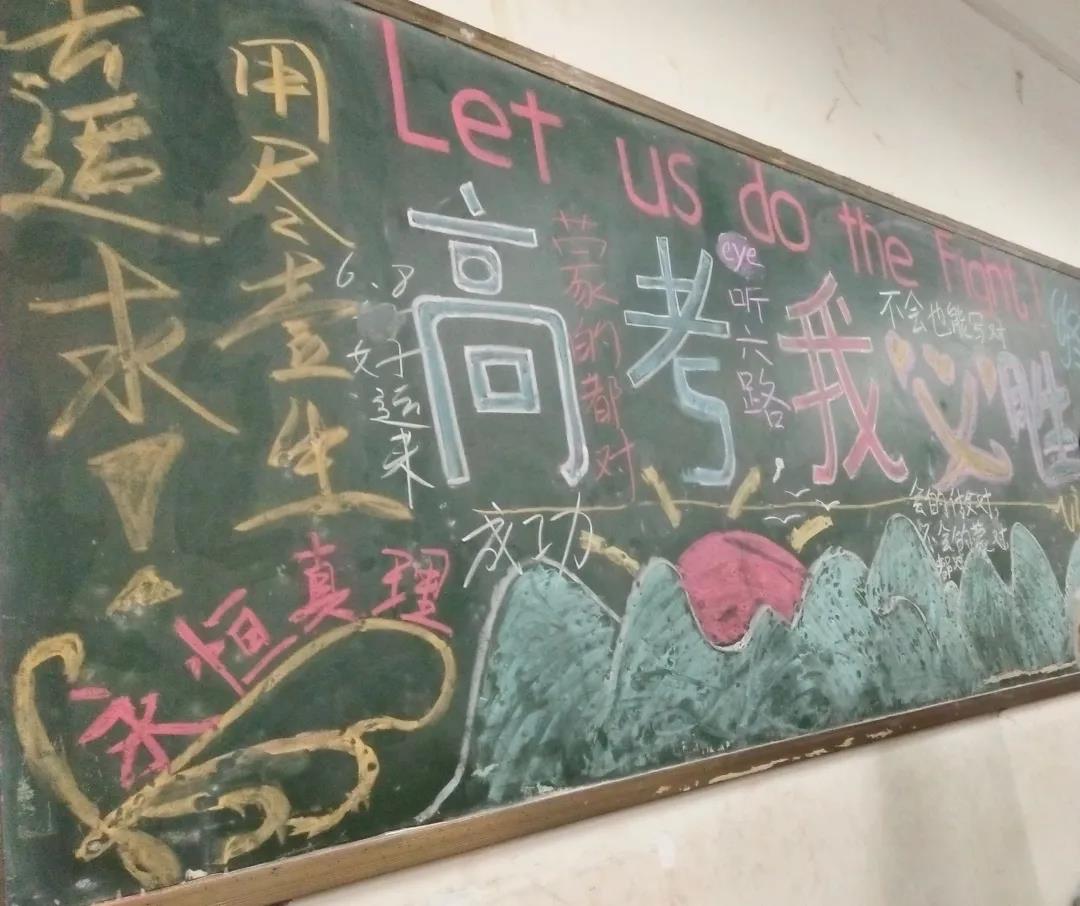 Let us do the Fight!
高考我必胜
用尽壹生
去追求！
永恒真理
6.8
好运来
蒙的都对
eye
听六路，
不会也能写对
成功
会的做对，
不会的蒙对
都对